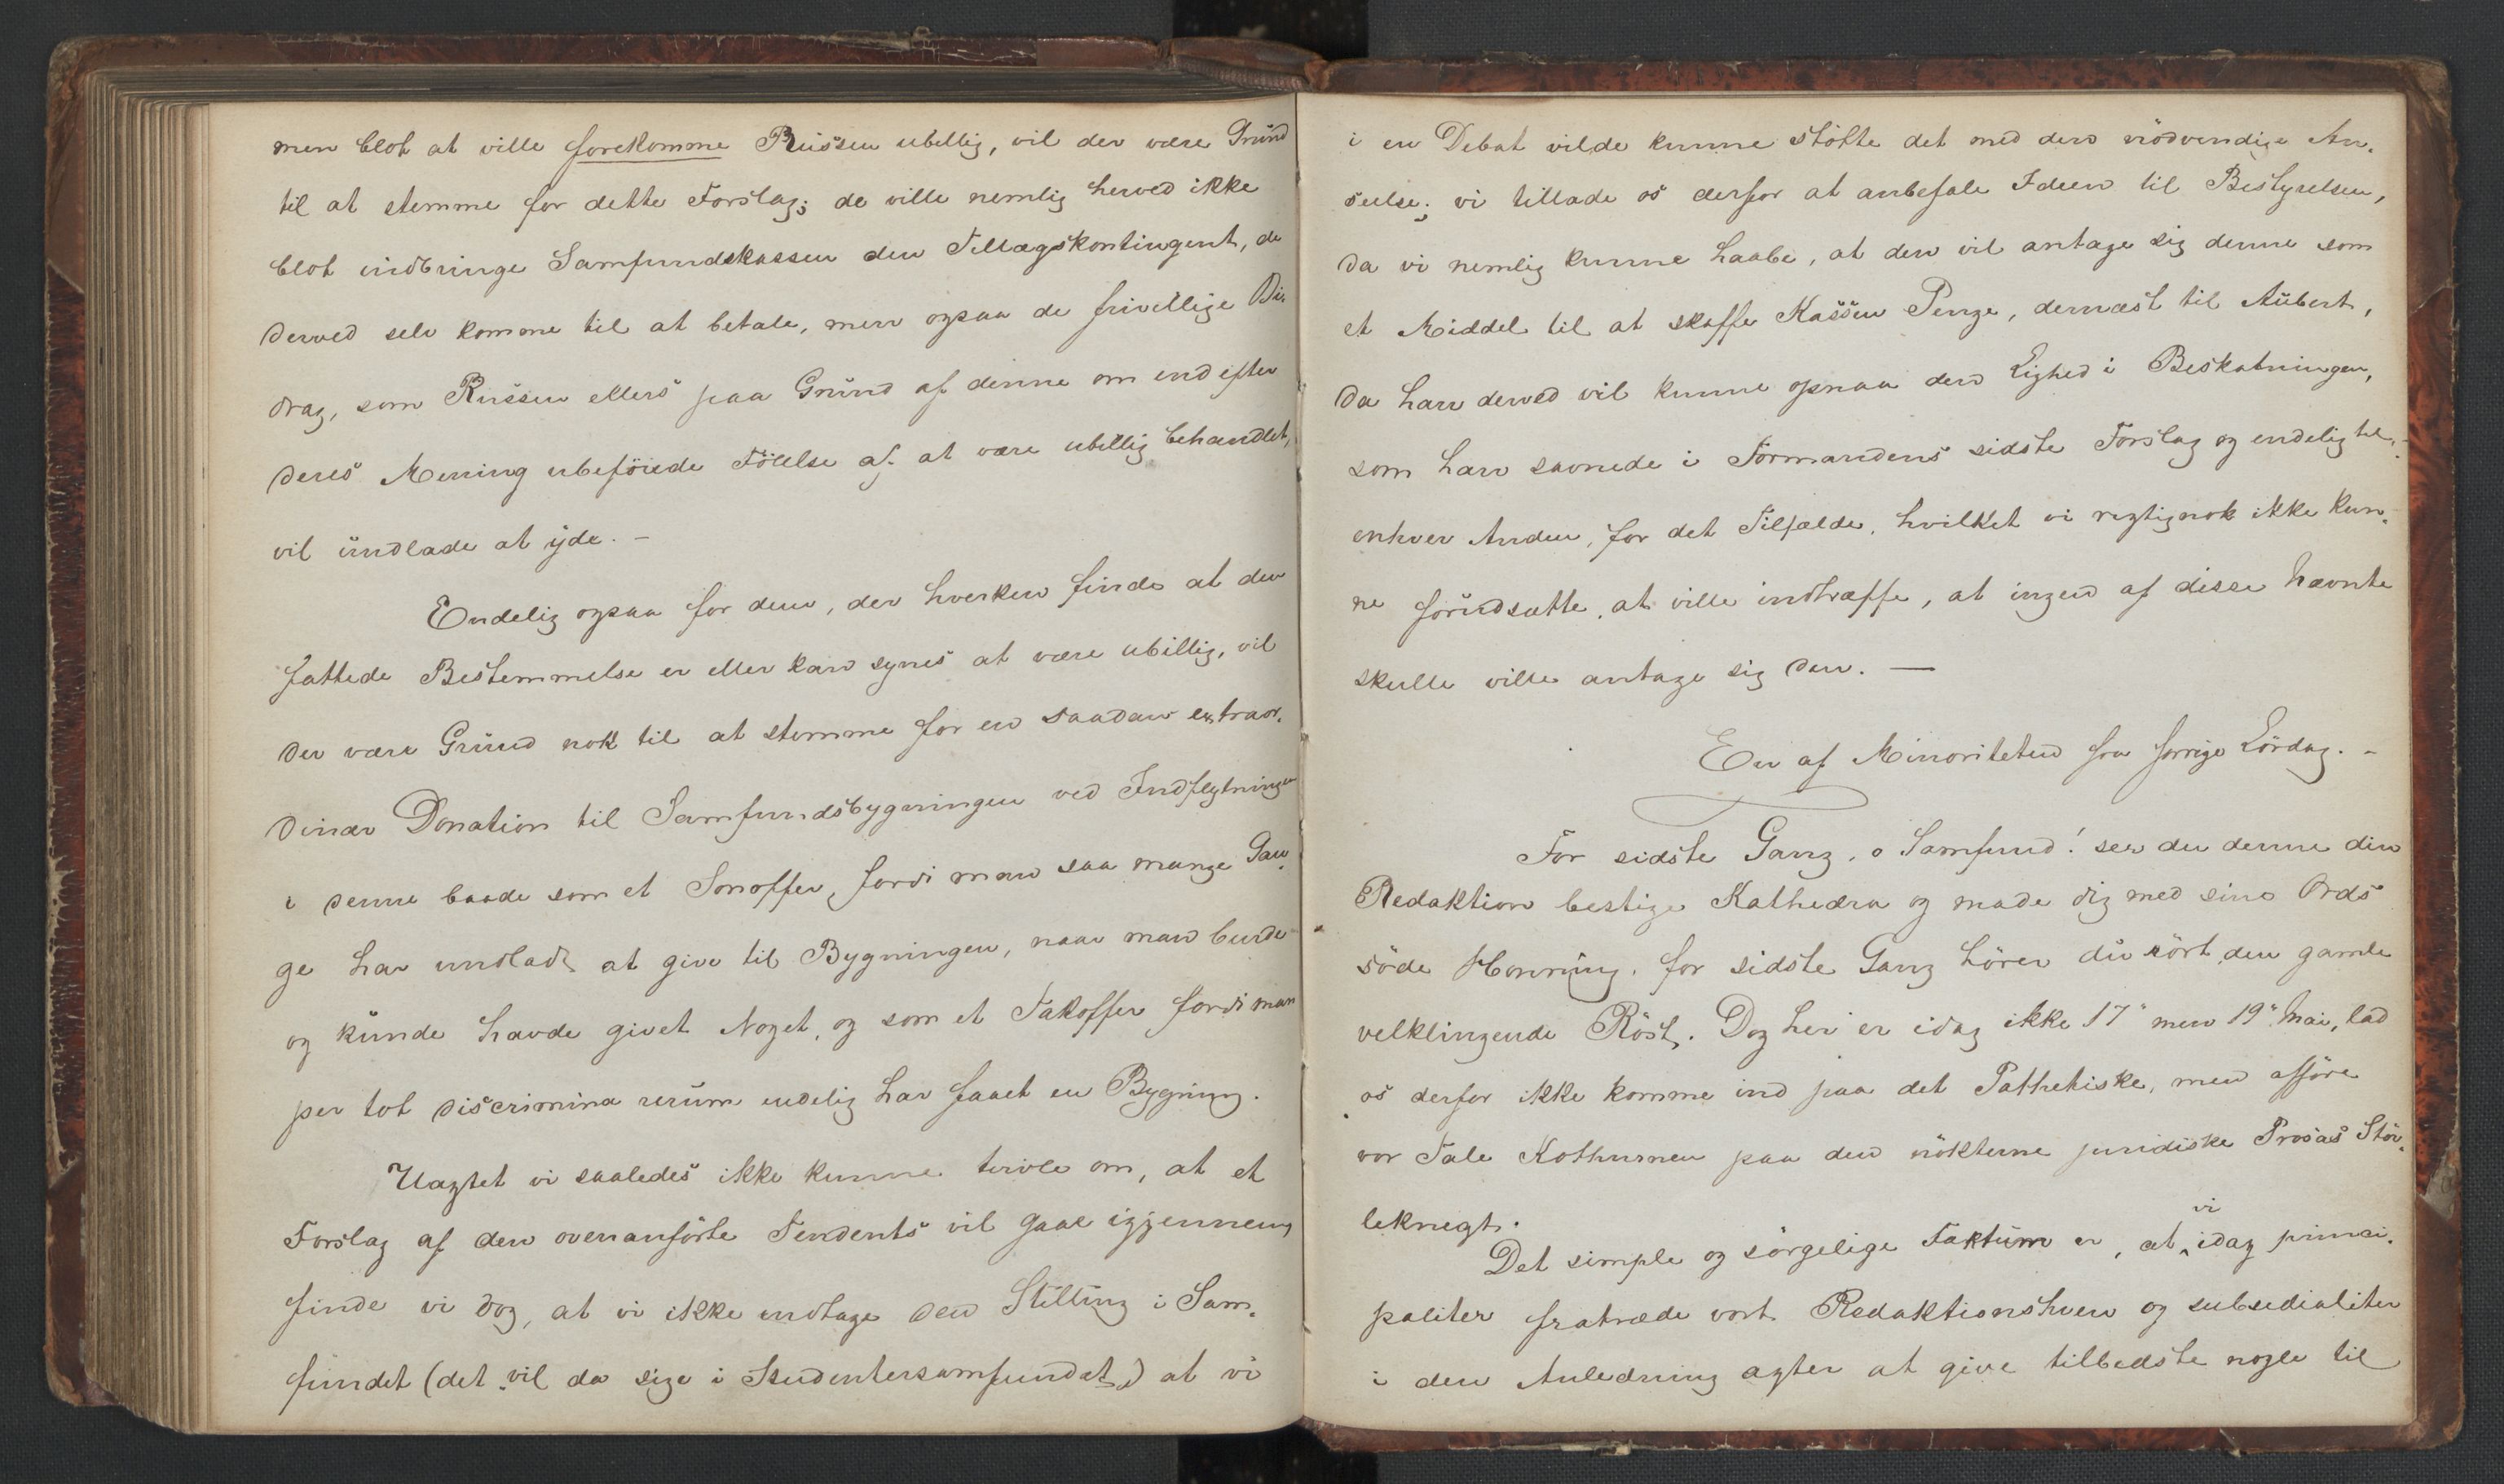 men blot at ville forekomme Russen ubillig, vil der være Grund
til at stemme for dette Forslag; de ville nemlig herved ikke
blot indbringe Samfundskassen den Tillægskontingent, de
derved selv komme til at betale, men ogsaa de frivillige Bi-
drag, som Russen ellers paa Grund af denne om end efter
deres Mening ubeföiede Fölelse af at være ubillig behandlet,
vil undlade at yde. -
Endelig ogsaa for dem, der hverken finde at den
fattede Bestemmelse er eller kan synes at være ubillig, vil
der være Grund nok til at stemme for en saadan extraor-
dinær Donation til Samfundsbygningen ved Indflytningen
i denne baade som et Sonoffer, fordi man saa mange Gan-
ge har undladt at give til Bygningen, naar man burde
og kunde havde givet Noget, og som et Takoffer fordi man
per tot discrimina rerum endelig har faaet en Bygning.
Uagtet vi saaledes ikke kunne tvivle om, at et
Forslag af den ovenanförte Tendents vil gaae igjennem,
finde vi dog, at vi ikke indtage den Stilling i Sam-
fundet (det vil da sige i Studentersamfundet) at vi
i en Debat vilde kunne stötte det med den nödvendige An-
seelse; vi tillade os derfor at anbefale Ideen til Bestyrelsen,
da vi nemlig kunne haabe, at den vil antage sig denne som
et Middel til at skaffe Kassen Penge, dernæst til Aubert,
da han derved vil kunne opnaa den Lighed i Beskatningen,
som han savnede i Formandens sidste Forslag og endelig til
enhver Anden, for det Tilfælde, hvilket vi rigtignok ikke kun-
ne forudsætte, at ville indtræffe, at ingen af disse nævnte
skulle ville antage sig den. —
En af Minoriteten fra forrige Lördag. -
For sidste Gang, o Samfund! ser du denne din
Redaktion bestige Kathedra og made dig med sine Ords
söde Honning, for sidste Gang hörer du rört den gamle
velklingende Röst. Dog her er idag ikke 17" men 19" Mai, lad
os derfor ikke komme ind paa det Pathetiske, men afföre
vor Tale Kothurnen paa den nökterne juridiske Prosas Stöv-
leknegt.
Det simple og sörgelige Faktum er, at vi idag princi-
paliter fratræde vort Redaktionshverv og subsidialiter
i den Anledning agter at give tilbedste nogle til